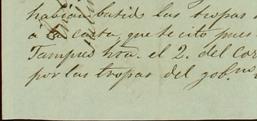 habian batido las tropas
á la caita, que se citó pues
Tampco hoa. el 2. del cor
por las tropas del gobno